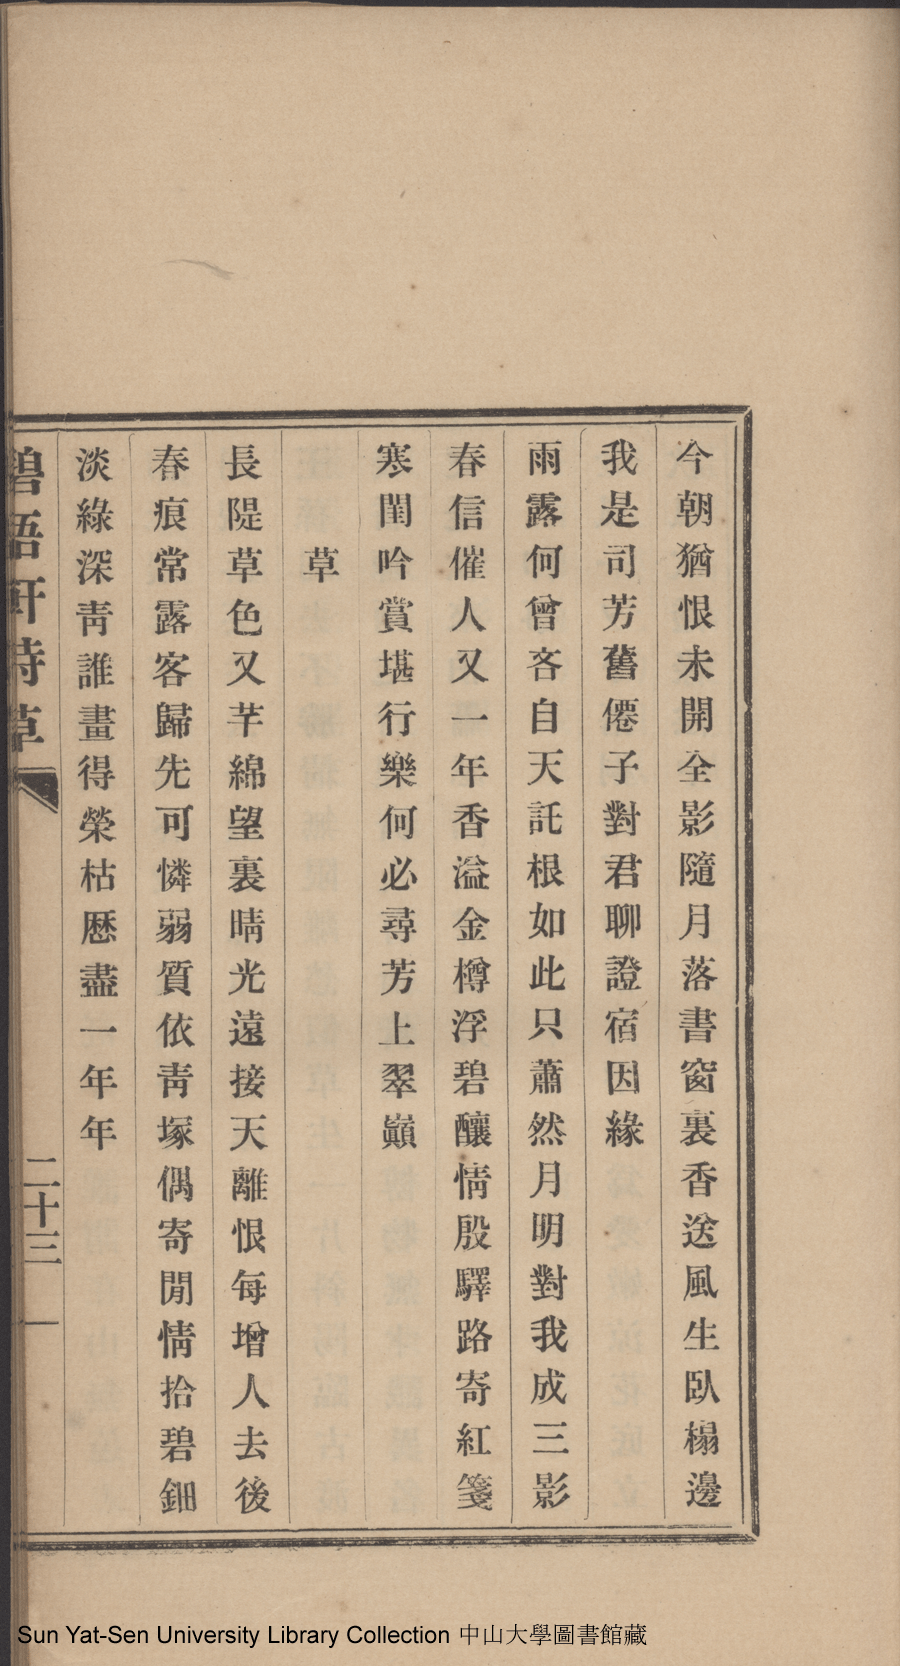 今朝猶恨未開全影隨月落書窗裏香送風生臥榻邊
我是司芳舊僊子對君聊證宿因緣
雨露何曾吝自天託根如此只蕭然月明對我成三影
春信催人又一年香溢金樽浮碧釀情殷驛路寄紅箋
寒閨吟賞堪行樂何必尋芳上翠巔
草
長隄草色又芊綿望裏晴光遠接天離恨每增人去後
春痕常露客歸先可憐弱質依靑塚偶寄閒情拾碧鈿
淡綠深靑誰畫得榮枯歷盡一年年
碧梧軒詩草
二十三
Sun Yat-Sen University Library Collection 中山大學圖書館藏